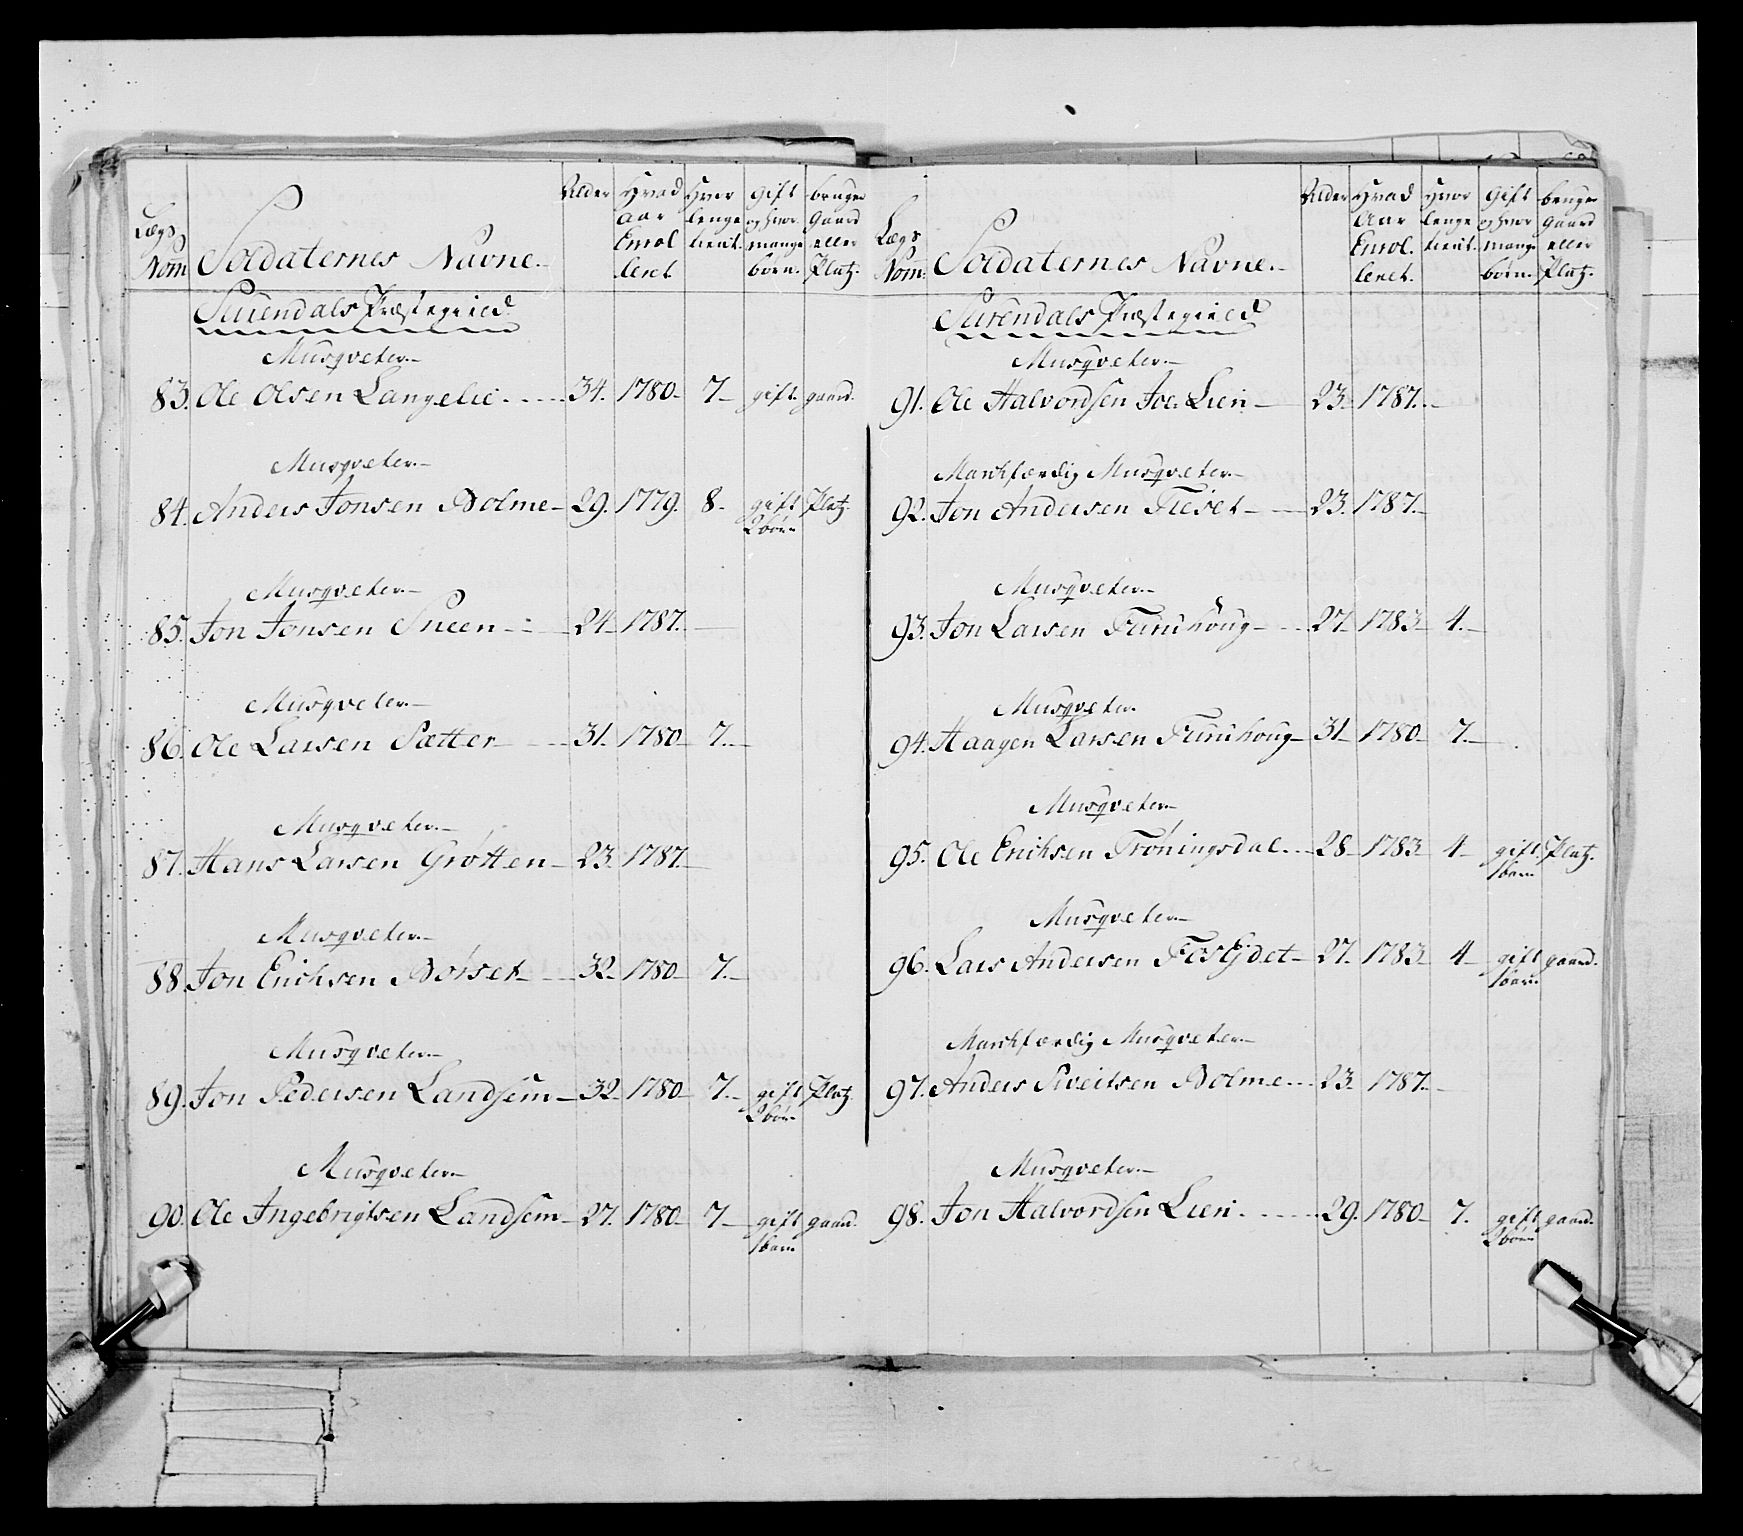 Lægs Nom. Soldaternes Navne. Alder Hvad Aar Enrol leret Hvor lenge tient. Gift og hvor mange børn. bruger Gaard eller Platz.
Surendals Præstegield
Musqveter.
83. Ole Olsen Langelie 34. 1780 7 gift. gaard.
Musqveter.
84. Anders Jonsen Bolme 29. 1779. 8. gift Platz.
2 børn
Musqveter.
85. Jon Jonsen Sneen 24 1787.
Musqveter.
86. Ole Larsen Sætter 31. 1780 7.
Musqveter.
87. Hans Larsen Grøtten 23. 1787.
Musqveter.
88. Jon Erichsen Børset 32 1780 7.
Musqveter.
89. Jon Pedersen Landsem 32 1780 7. gift Platz.
2 børn
Musqveter.
90. Ole Ingebrigtsen Landsem 27. 1780 7 gift gaard.
1 barn
Lægs Nom. Soldaternes Navne. Alder Hvad Aar Enrol. leret. Hvor lenge tient. Gift og hvor mange børn. bruger Gaard eller Platz.
Surendals Præstegield
Musqveter.
91. Ole Halvordsen Lien 23. 1787.
Marchfærdig Musqveter.
92. Jon Andersen Fiset 23. 1787.
Musqveter.
93. Jon Larsen Furuhoug 27. 1783 4.
Musqveter.
94. Haagen Larsen Furuhoug 31 1780 7.
Musqveter.
95. Ole Erichsen Trøningsdal 28 1783 4 gift. Platz.
1 barn
Musqveter.
96. Lars Andersen 27. 1783 4 gift gaard.
1 barn
Marchfærdig Musqveter.
97. Anders Siveitsen Bolme 23. 1787.
Musqveter.
98. Jon Halvordsen Lien 29. 1780 7. gift gaard.
2 børn